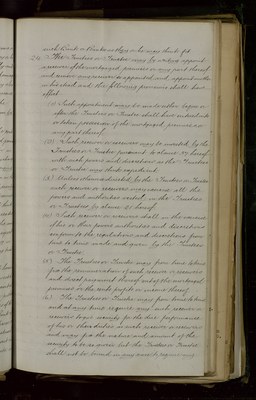 such Trustee or Trustees they or he may think fit
The Trustees or Trustee may by writing appoint
a receiver of the mortgaged premises or any part thereof
and remove any receiver so appointed and appoint another
in his stead and the following provisions shall have
effect
(1) Such appointment may be made either before or
after the Trustees or Trustee shall have entered into
or taken possession of the mortgaged premises or
any part thereof
(2) Such receiver or receivers may be invested by the
Trustees or Trustee pursuant to clause hereof
with such powers and discretions as the Trustees
or Trustee may think expedient
(3) Unless otherwise directed by the Trustees or Trustee
such receiver or receivers may exercise all the
powers and authorities vested in the Trustees
or Trustee by clause hereof
(4) Such receiver or receivers shall in the exercise
of his or their powers authorities and discretions
conform to the regulations and directions from
time to time made and given by the Trustees
or Trustee
(5) The Trustees or Trustee may from time to time
fix the remuneration of such receiver or receivers
and direct payment thereof out of the mortgaged
premises or the rents profits or income thereof
(6) The Trustees or Trustee may from time to time
and at any time require any such receiver or
receivers to give security for the due performance
of his or their duties as such receiver or receivers
and may fix the nature and amount of the
security to be so given but the Trustees or Trustee
shall not be bound in any case to require any